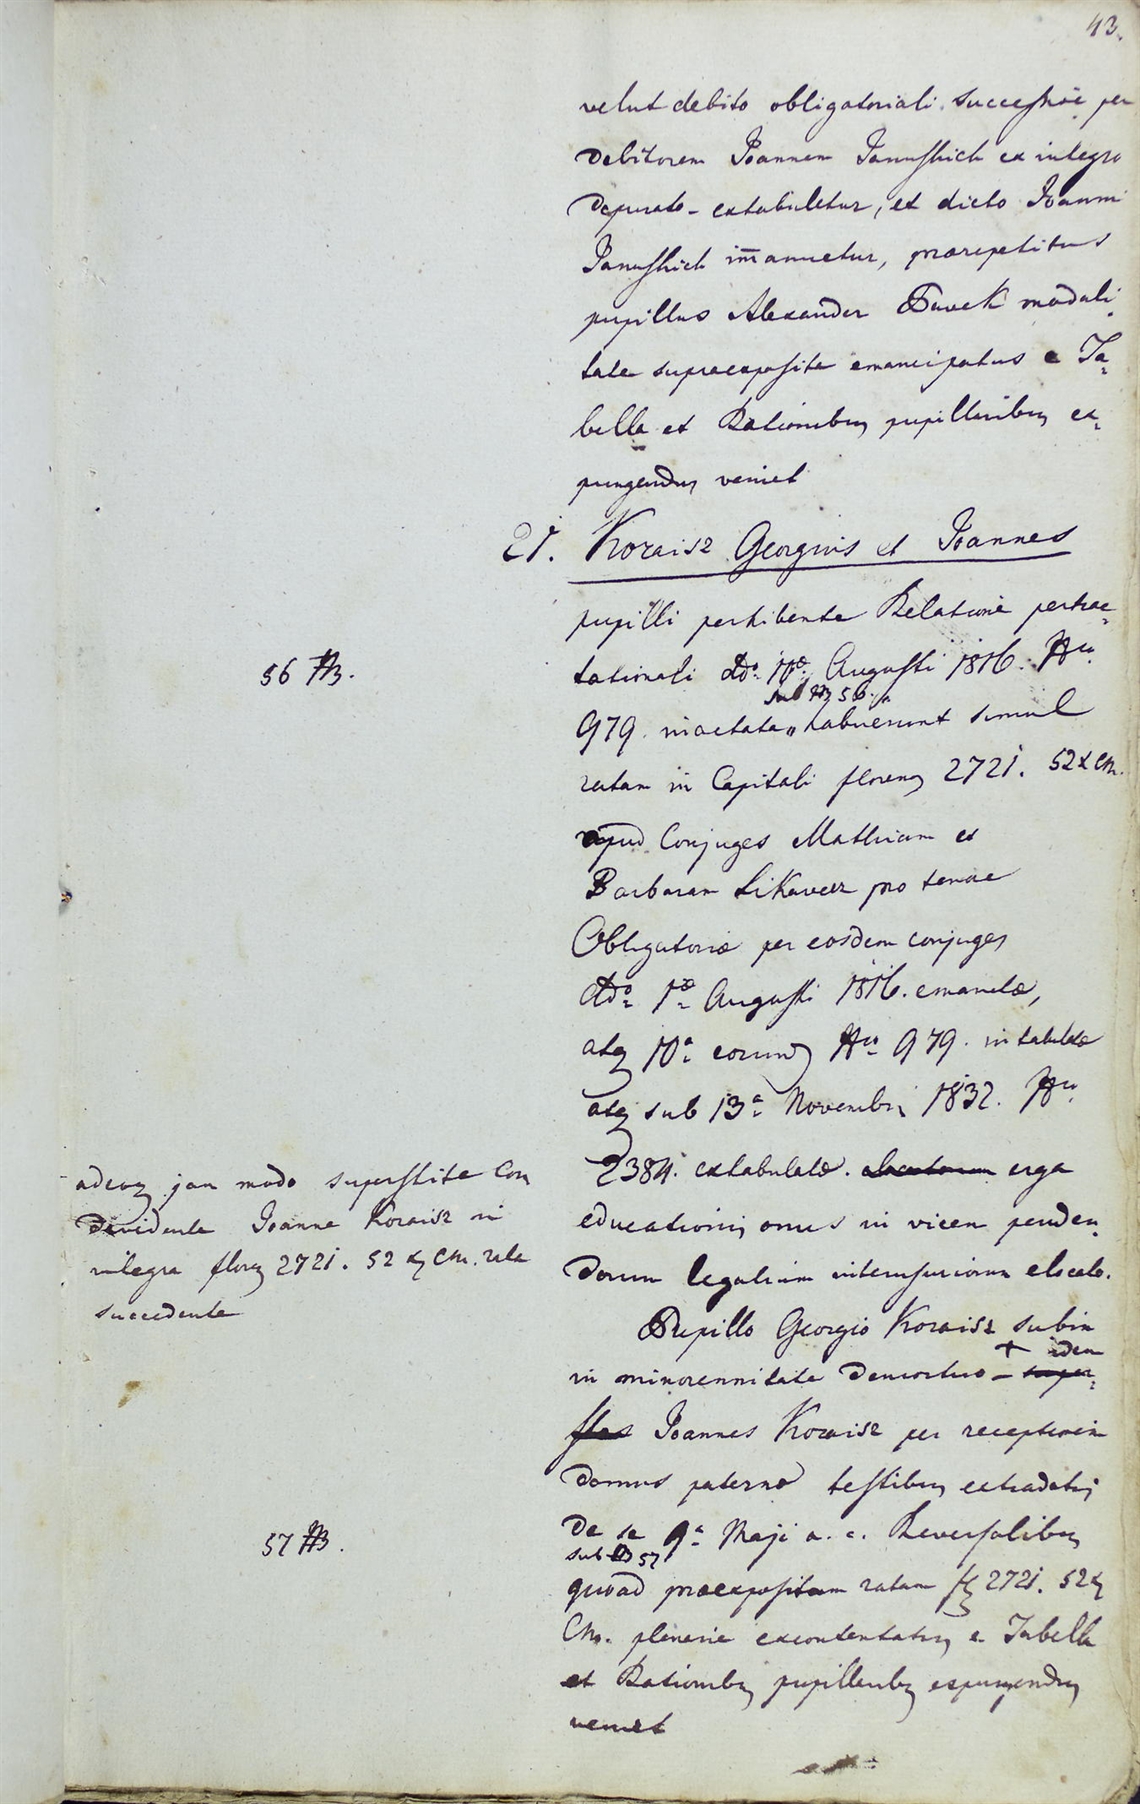 43.
velut debito obligatoriali successive per
debitorem Joannem Janusskich ex integro
depurato - extabuletur, et dicto Joanni
Janusskich immanuetur, praerepetitus
pupillus Alexander Pavek modali,
tate supraexposita emancipatus e Ta,
bella et Rationibus pupillaribus ex,
pungendus veniet
21. Koraisz Georgius et Joannes
pupilli perhibente Relatione pertrac,
tationali ddo 10a Augusti 1816. Nro
sub 56.
979. inactata habuerunt simul
ratam in Capitali florenos 2721. 52 x CM.
56
apud Conjuges Mathiam et
Barbaram pro tenore
Obligatoriae per eosdem conjuges
ddo 1a Augusti 1816. emanatae,
atq 10a eorund Nro 979. intabulatae
atq sub 13a Novembris 1832. Nro
2384. extabulatae. erga
educationis onus in vicem penden,
dorum legalium interusuriorum elocato.
adeoq jam modo superstite Con
dividente Joanne Koraisz in
integra flor 2721. 52 x CM. rata
succedente
Pupillo Georgio Koraisz subin
in minorennitate demortuo - + idem
super,
stes Joannes Koraisz per receptionem
domus paternae testibus extradatis
de se 9a Maji a. c. Reversalibus
sub 57
57
quoad praeexpositam ratam f 2721. 52 x
CM. plenarie excontentatus e Tabella
et Rationibus pupillaribus expungendus
veniet